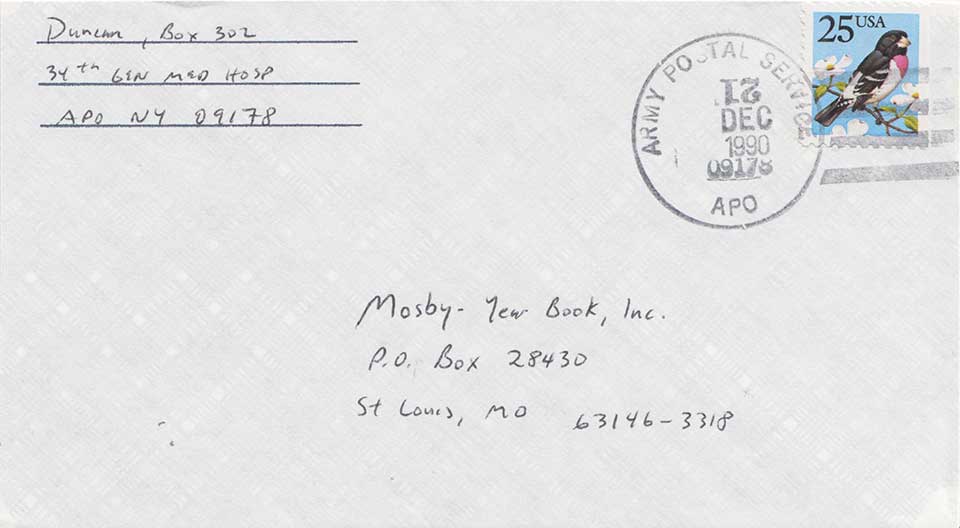 Duncan, Box 302
34th GEN MED HOSP
APO NY 09178
ARMY POSTAL SERVICE
21
DEC
1990
09178
APO
25 USA
Mosby-Year Book, Inc.
P.O. Box 28430
St Louis, MO 63146-3318